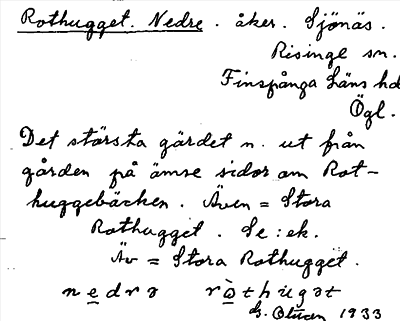 Rothugget. Nedre. åker. Sjönäs.
Risinge sn.
Finspånga Läns hd
Ögl.
Det största gärdet n. ut från
gården på ömse sidor om Rot-
huggebäcken. Även = Stora
Rothugget. Se: ek.
Äv = Stora Rothugget.
nedrə ròthugət
1933